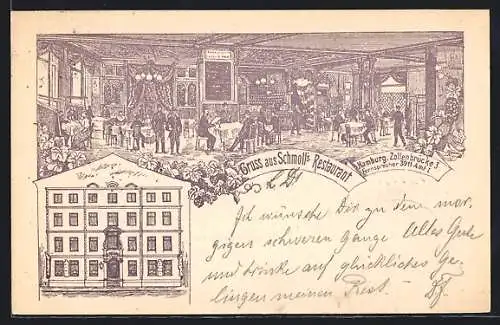 Gruss aus Schmoll's Restaurant
Hamburg, Zollenbrücke 3
Fernsprecher 3911 Amt I.
L. D!
Ich wünsche Dir zu dem mor-
gigen schweren Gange Alles Gute
und trinke auf glückliches Ge-
lingen meinen Rest. —